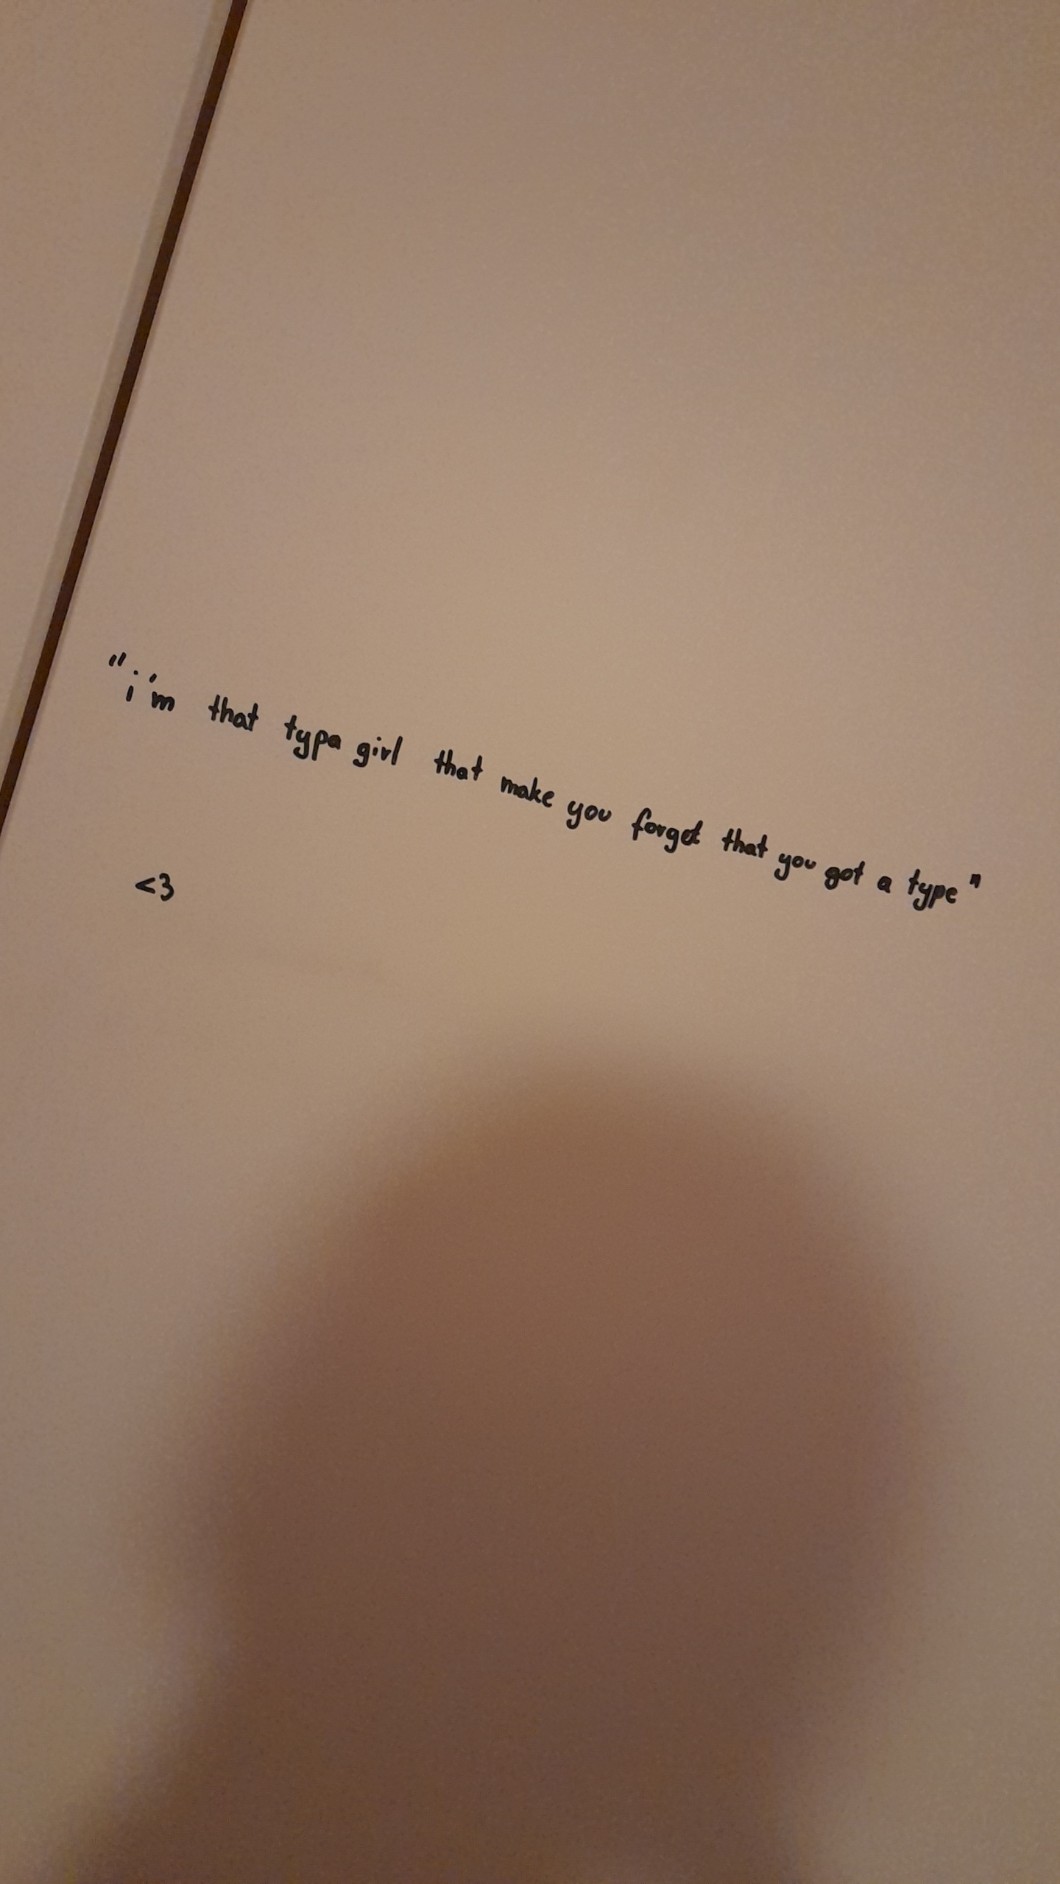 "i'm that typa girl that make you forget that you got a type"
<3